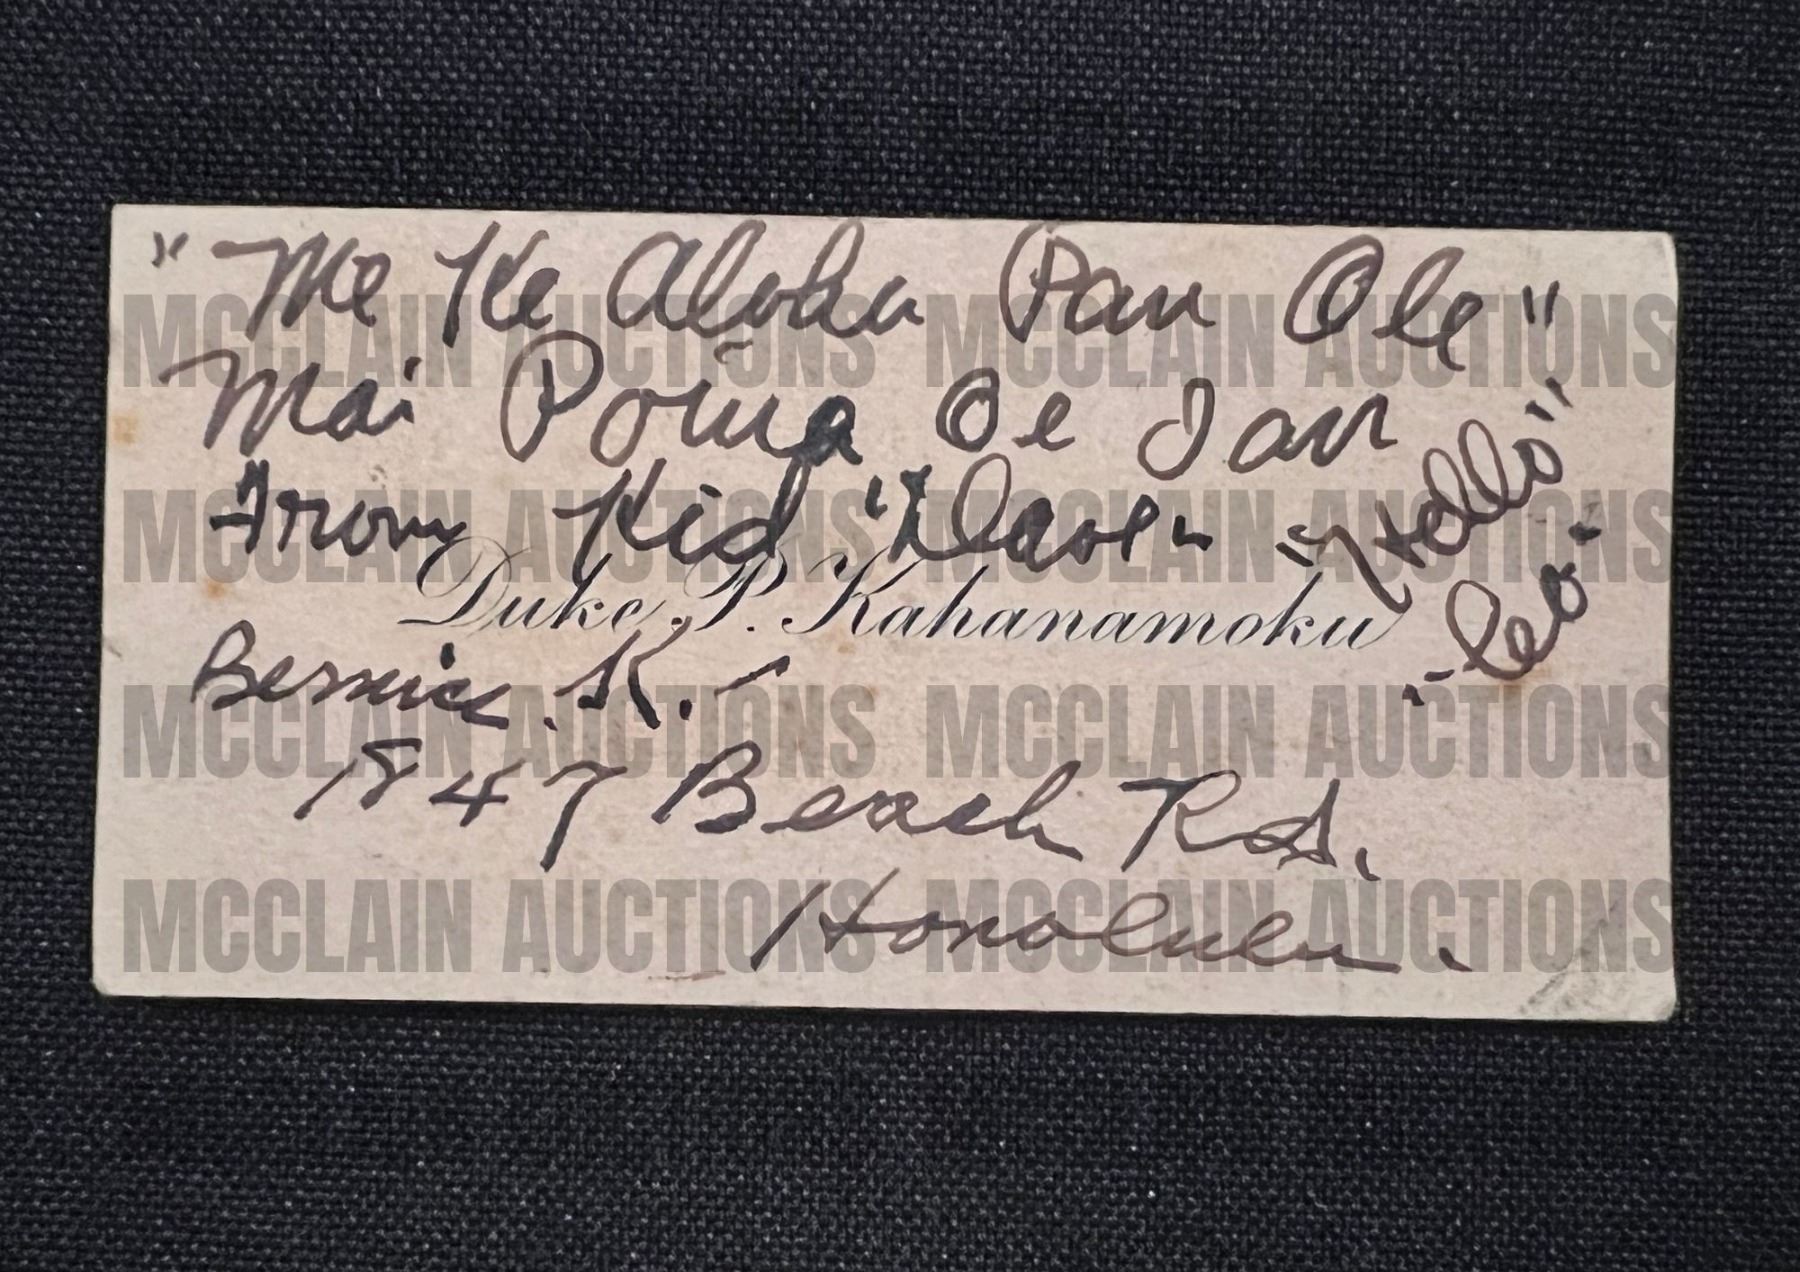 "Me Ke Aloha Pau Ole"
Mai Poina Oe Iau
From Kid "Dave"
"Hello"
"Leo"
Duke P. Kahanamoku
Bernice. K. -
1847 Beach Rd.
Honolulu.
MCCLAIN AUCTIONS MCCLAIN AUCTIONS
MCCLAIN AUCTIONS MCCLAIN AUCTIONS
MCCLAIN AUCTIONS MCCLAIN AUCTIONS
MCCLAIN AUCTIONS MCCLAIN AUCTIONS